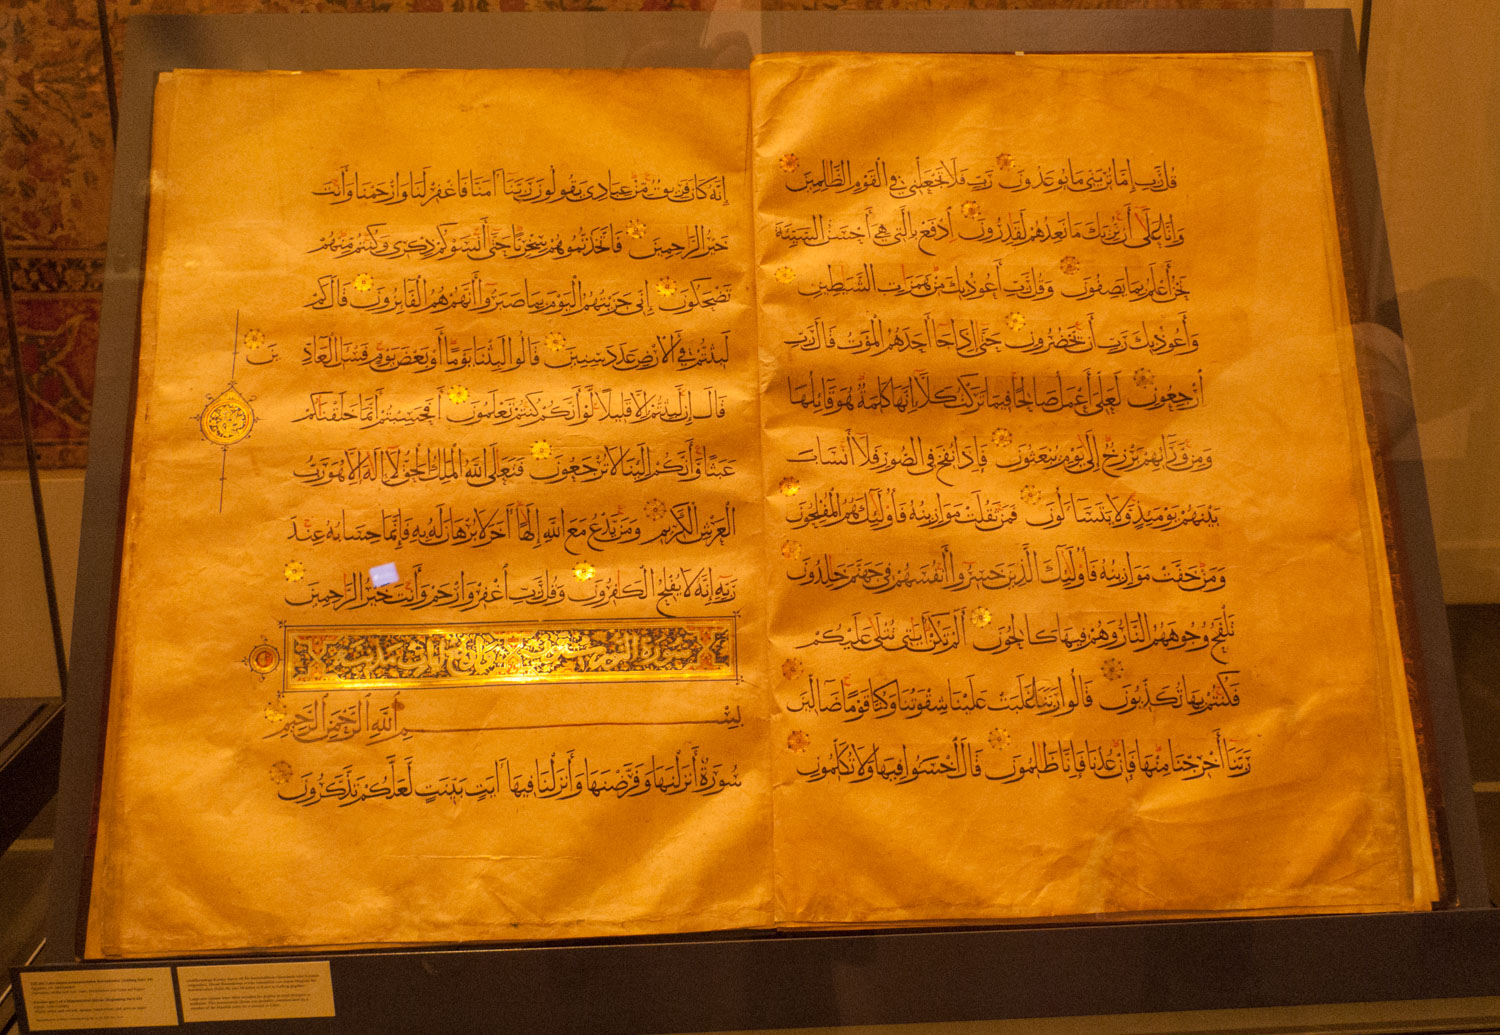 قُلْ رَبِّ إِمَّا تُرِيَنِّي مَا يُوعَدُونَ رَبِّ فَلَا تَجْعَلْنِي فِي الْقَوْمِ الظَّالِمِينَ
وَإِنَّا عَلَى أَنْ نُرِيَكَ مَا نَعِدُهُمْ لَقَٰدِرُونَ ادْفَعْ بِالَّتِي هِيَ أَحْسَنُ السَّيِّئَةَ
نَحْنُ أَعْلَمُ بِمَا يَصِفُونَ وَقُلْ رَبِّ أَعُوذُ بِكَ مِنْ هَمَزَٰتِ الشَّيَٰطِينِ
وَأَعُوذُ بِكَ رَبِّ أَنْ يَحْضُرُونِ حَتَّى إِذَا جَاءَ أَحَدَهُمُ الْمَوْتُ قَالَ رَبِّ
ارْجِعُونِ لَعَلِّي أَعْمَلُ صَالِحًا فِيمَا تَرَكْتُ كَلَّا إِنَّهَا كَلِمَةٌ هُوَ قَائِلُهَا
وَمِنْ وَرَائِهِمْ بَرْزَخٌ إِلَى يَوْمِ يُبْعَثُونَ فَإِذَا نُفِخَ فِي الصُّورِ فَلَا أَنْسَابَ
بَيْنَهُمْ يَوْمَئِذٍ وَلَا يَتَسَاءَلُونَ فَمَنْ ثَقُلَتْ مَوَازِينُهُ فَأُولَٰئِكَ هُمُ الْمُفْلِحُونَ
وَمَنْ خَفَّتْ مَوَازِينُهُ فَأُولَٰئِكَ الَّذِينَ خَسِرُوا أَنْفُسَهُمْ فِي جَهَنَّمَ خَالِدُونَ
تَلْفَحُ وُجُوهَهُمُ النَّارُ وَهُمْ فِيهَا كَالِحُونَ أَلَمْ تَكُنْ آيَاتِي تُتْلَى عَلَيْكُمْ
فَكُنْتُمْ بِهَا تُكَذِّبُونَ قَالُوا رَبَّنَا غَلَبَتْ عَلَيْنَا شِقْوَتُنَا وَكُنَّا قَوْمًا ضَالِّينَ
رَبَّنَا أَخْرِجْنَا مِنْهَا فَإِنْ عُدْنَا فَإِنَّا ظَالِمُونَ قَالَ اخْسَئُوا فِيهَا وَلَا تُكَلِّمُونِ
إِنَّهُ كَانَ فَرِيقٌ مِنْ عِبَادِي يَقُولُونَ رَبَّنَا آمَنَّا فَاغْفِرْ لَنَا وَارْحَمْنَا وَأَنْتَ
خَيْرُ الرَّاحِمِينَ فَاتَّخَذْتُمُوهُمْ سِخْرِيًّا حَتَّى أَنْسَوْكُمْ ذِكْرِي وَكُنْتُمْ مِنْهُمْ
تَضْحَكُونَ إِنِّي جَزَيْتُهُمُ الْيَوْمَ بِمَا صَبَرُوا أَنَّهُمْ هُمُ الْفَائِزُونَ قَالَ كَمْ
لَبِثْتُمْ فِي الْأَرْضِ عَدَدَ سِنِينَ قَالُوا لَبِثْنَا يَوْمًا أَوْ بَعْضَ يَوْمٍ فَسْئَلِ الْعَادِّينَ
قَالَ إِنْ لَبِثْتُمْ إِلَّا قَلِيلًا لَوْ أَنَّكُمْ كُنْتُمْ تَعْلَمُونَ أَفَحَسِبْتُمْ أَنَّمَا خَلَقْنَاكُمْ
عَبَثًا وَأَنَّكُمْ إِلَيْنَا لَا تُرْجَعُونَ فَتَعَالَى اللَّهُ الْمَلِكُ الْحَقُّ لَا إِلَٰهَ إِلَّا هُوَ رَبُّ
الْعَرْشِ الْكَرِيمِ وَمَنْ يَدْعُ مَعَ اللَّهِ إِلَٰهًا آخَرَ لَا بُرْهَانَ لَهُ بِهِ فَإِنَّمَا حِسَابُهُ عِنْدَ
رَبِّهِ إِنَّهُ لَا يُفْلِحُ الْكَٰفِرُونَ وَقُلْ رَبِّ اغْفِرْ وَارْحَمْ وَأَنْتَ خَيْرُ الرَّاحِمِينَ
سورة النور
بِسْمِ اللَّهِ الرَّحْمَٰنِ الرَّحِيمِ
سُورَةٌ أَنْزَلْنَٰهَا وَفَرَضْنَٰهَا وَأَنْزَلْنَا فِيهَا آيَٰتٍ بَيِّنَٰتٍ لَعَلَّكُمْ تَذَكَّرُونَ